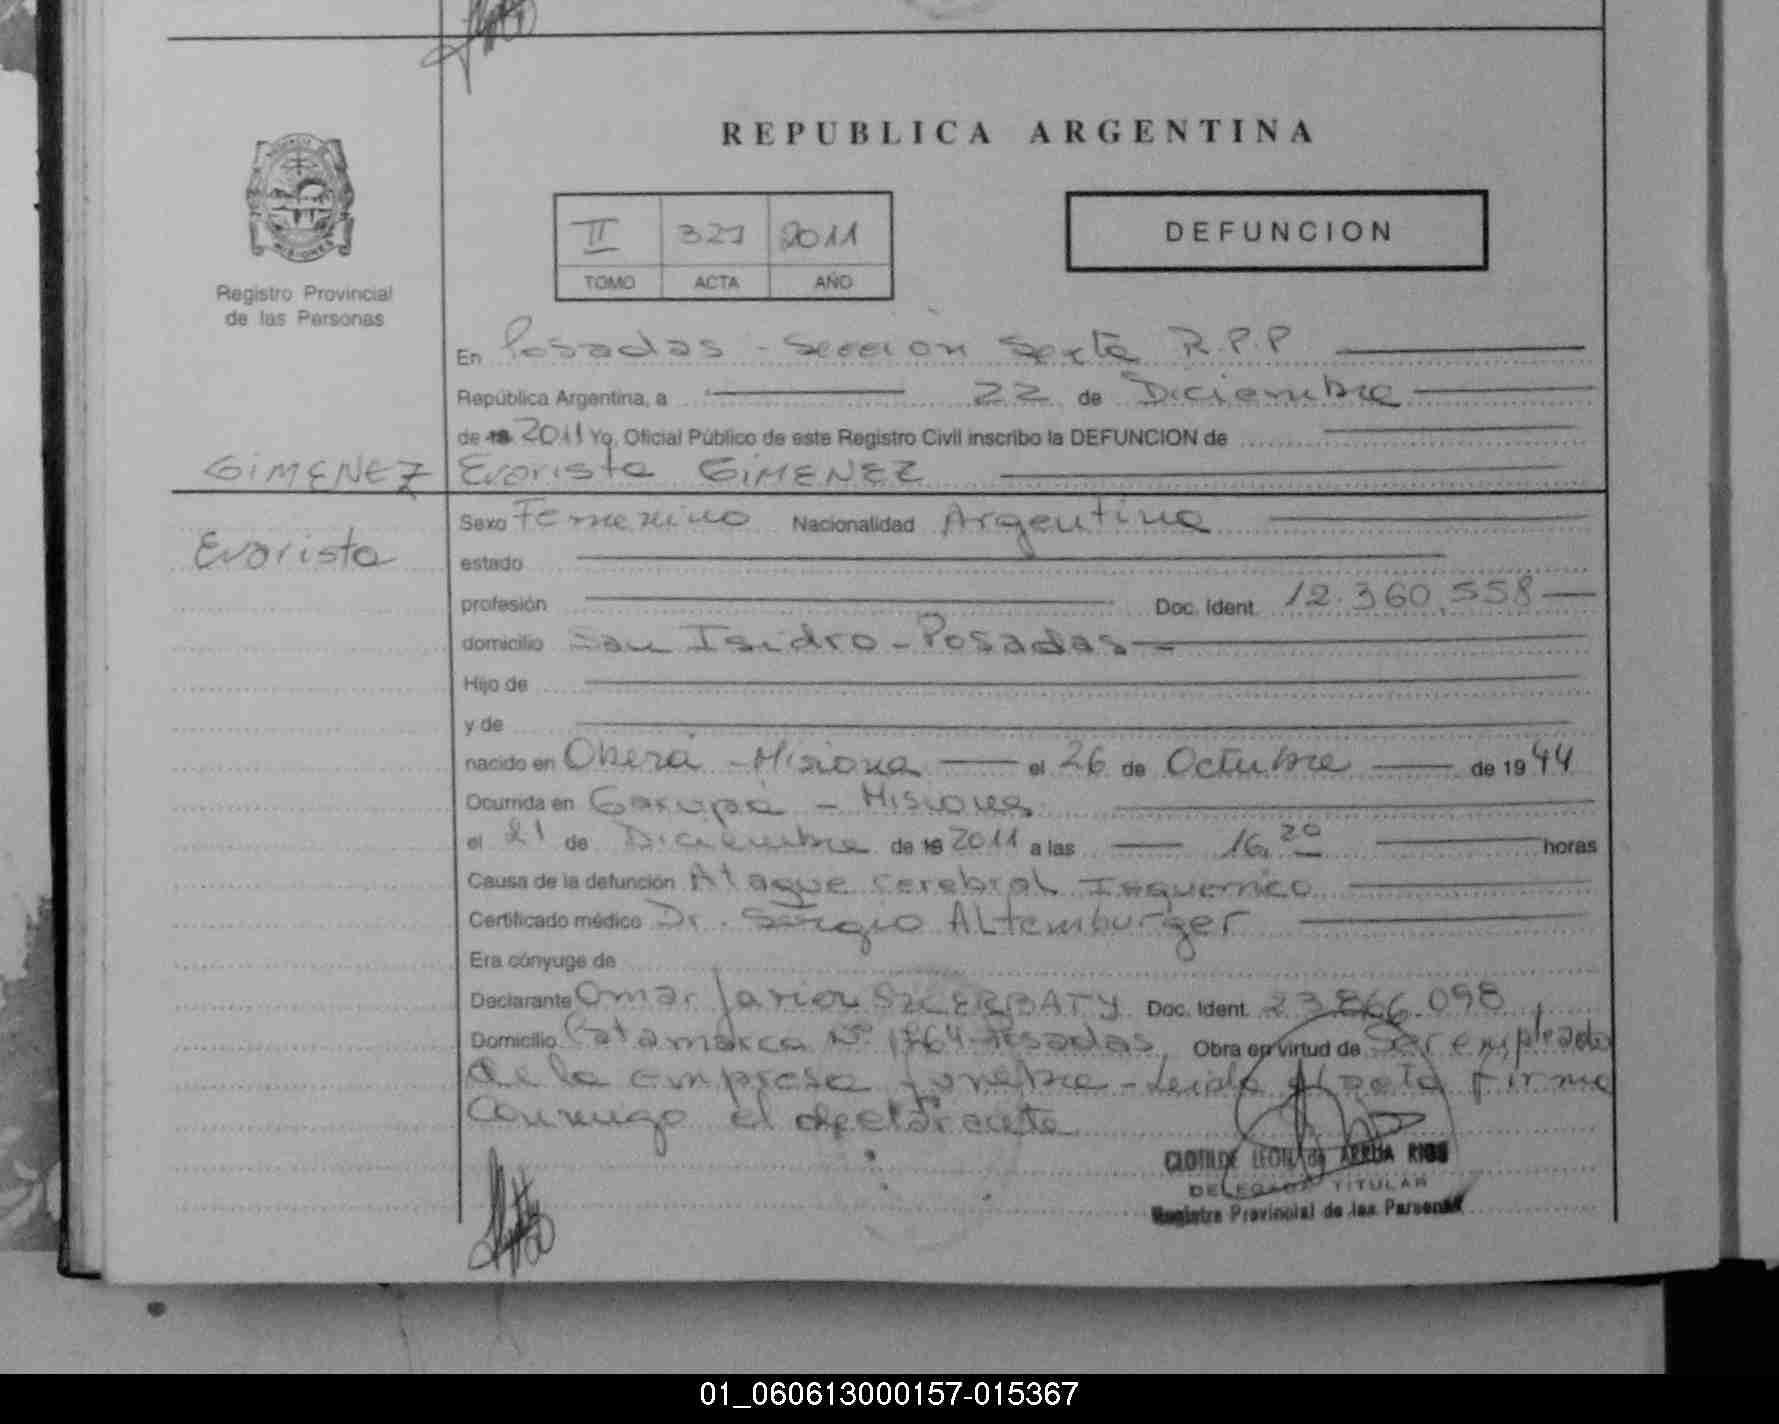 REPUBLICA ARGENTINA
II 321 2011
TOMO ACTA AÑO
DEFUNCION
MISIONES
Registro Provincial
de las Personas
En Posadas - Sección Sexta R.P.P
República Argentina, a 22 de Diciembre
de 19 2011 Yo, Oficial Público de este Registro Civil inscribo la DEFUNCION de
GIMENEZ Evarista GIMENEZ
Evarista
Sexo Femenino Nacionalidad Argentina
estado
profesión Doc. Ident. 12.360.558
domicilio San Isidro - Posadas
Hijo de
y de
nacido en Oberá - Misiones el 26 de Octubre de 1944
Ocurrida en Garupá - Misiones
el 21 de Diciembre de 19 2011 a las 16,20 horas
Causa de la defunción Ataque cerebral Isquemico
Certificado médico Dr. Sergio ALtemburger
Era cónyuge de
Declarante Omar Javier SZCERBATY Doc. Ident. 23.866.098
Domicilio Catamarca Nº 1764 - Posadas, Obra en virtud de Ser empleado
de la empresa funebre - Leida el acta firma
conmigo el declarante
CLOTILDE LEON de ARRUA RIOS
DELEGADA TITULAR
Registro Provincial de las Personas
01_060613000157-015367